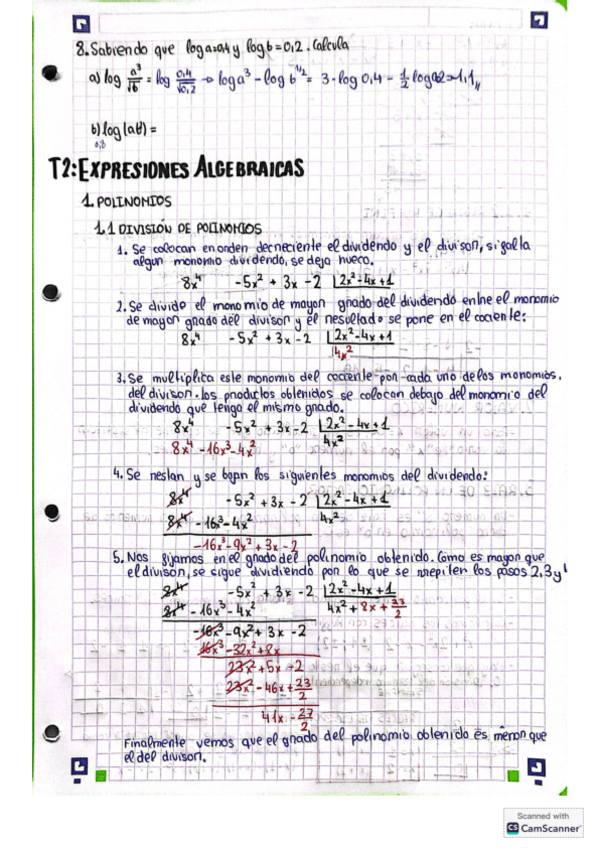 8. Sabiendo que log a=0,4 y log b=0,2. Calcula
a) log a³/√b = log 0,4/√0,2 → log a³ - log b^1/2 = 3 · log 0,4 - 1/2 log 0,2 = 1,1
b) log (ab) =
T2: EXPRESIONES ALGEBRAICAS
1. POLINOMIOS
1.1 DIVISIÓN DE POLINOMIOS
1. Se colocan en orden decreciente el dividendo y el divisor, si falta
algun monomio dividendo, se deja hueco.
8x⁴ -5x² + 3x - 2 | 2x² - 4x + 1
2. Se divide el monomio de mayor grado del dividendo entre el monomio
de mayor grado del divisor y el resultado se pone en el cociente:
8x⁴ -5x² + 3x - 2 | 2x² - 4x + 1
4x²
3. Se multiplica este monomio del cociente por cada uno de los monomios,
del divisor. los productos obtenidos se colocan debajo del monomio del
dividendo que tenga el mismo grado.
8x⁴ -5x² + 3x - 2 | 2x² - 4x + 1
8x⁴ - 16x³ - 4x² 4x²
4. Se restan y se bajan los siguientes monomios del dividendo:
8x⁴ -5x² + 3x - 2 | 2x² - 4x + 1
8x⁴ - 16x³ - 4x² 4x²
-16x³ - 9x² + 3x - 2
5. Nos fijamos en el grado del polinomio obtenido. Como es mayor que
el divisor, se sigue dividiendo por lo que se repiten los pasos 2, 3 y
8x⁴ -5x² + 3x - 2 | 2x² - 4x + 1
8x⁴ - 16x³ - 4x² 4x² + 8x + 23/2
-16x³ - 9x² + 3x - 2
16x³ - 32x² + 8x
23x² + 5x - 2
23x² - 46x + 23/2
41x - 27/2
Finalmente vemos que el grado del polinomio obtenido es menor que
el del divisor.
Scanned with
CS CamScanner